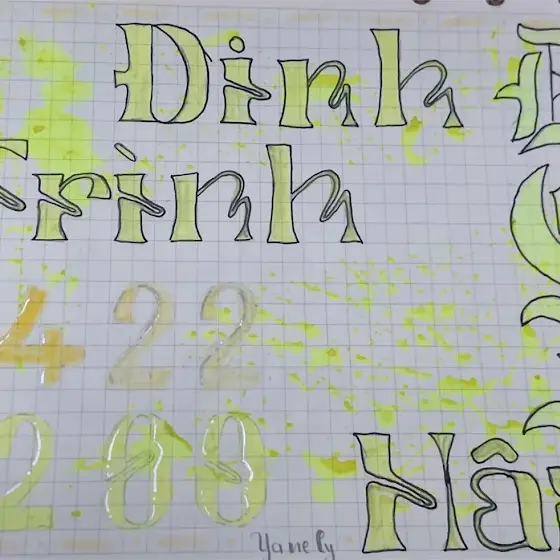 Đinh
Trình
422
200
Yanely